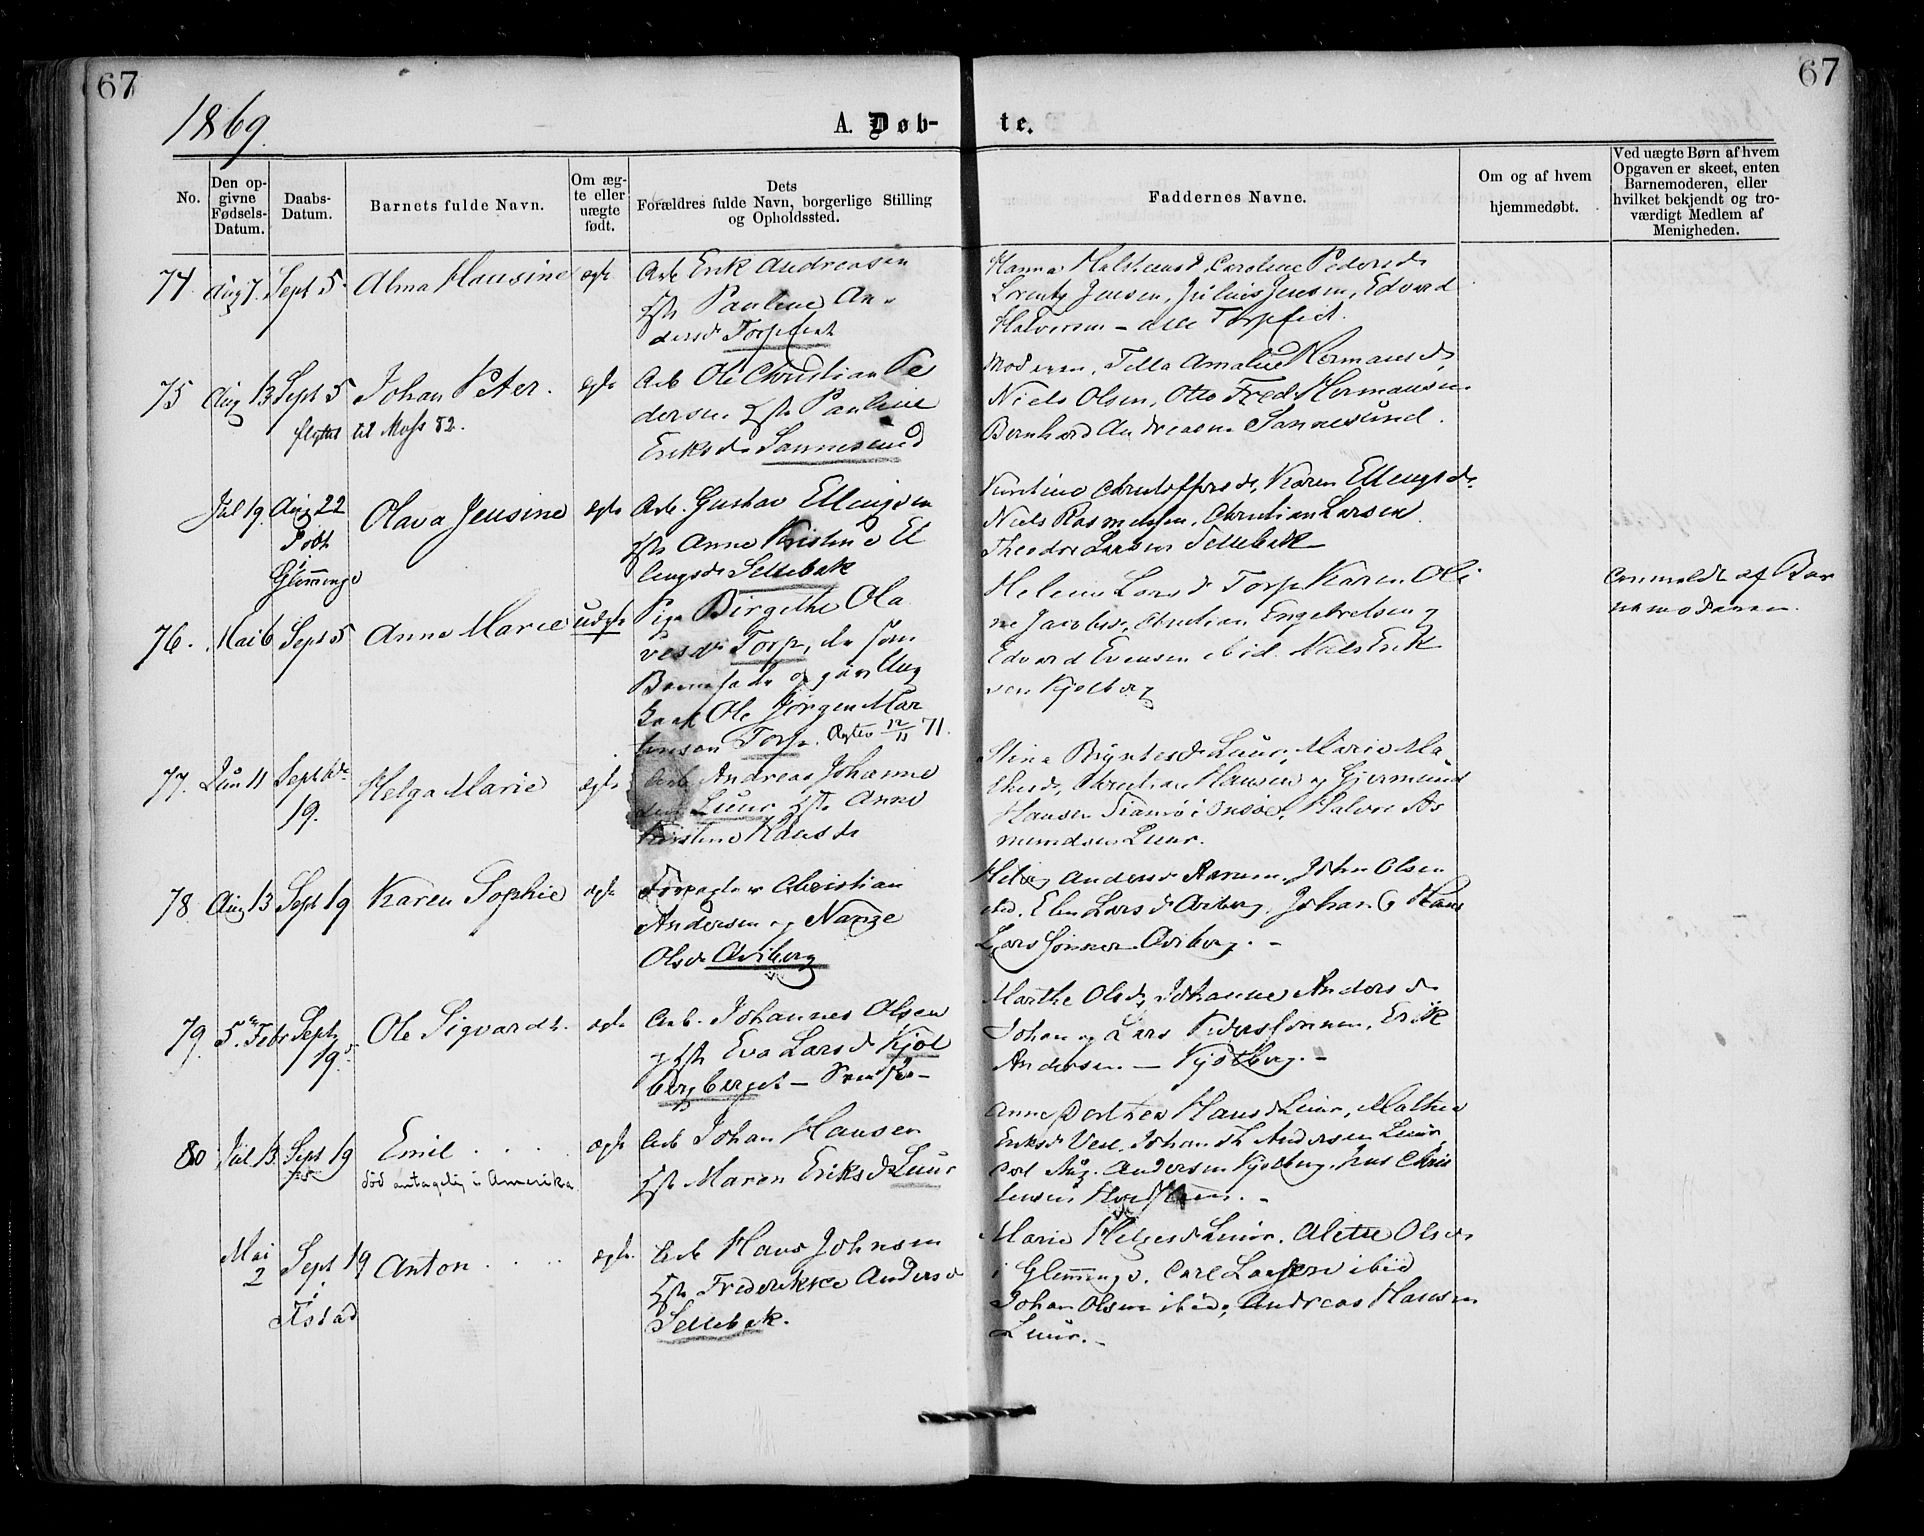 67
67
1869.
A. Døb-te.
No.
Den opgivne Fødsels-Datum.
Daabs-Datum.
Barnets fulde Navn.
Om ægte eller uægte født.
Dets Forældres fulde Navn, borgerlige Stilling og Opholdssted.
Faddernes Navne.
Om og af hvem hjemmedøbt.
Ved uægte Børn af hvem Opgaven er skeet, enten Barnemoderen, eller hvilket bekjendt og troværdigt Medlem af Menigheden.
74 Aug 7. Sept 5. Alma Hansine ægte
Arb Erik Andreasen
Hst Pauline An-
dersd
Hanna Halstensd, Caroline Pedersd
Lorentz Jensen, Julius Jensen, Edvard
Halversen – alle
75 Aug 13 Sept 5 Johan Peter. ægte
flyttet til Moss 82.
Arb Ole Christian Pe
dersen Hst Pauline
Eriksd Sannesund
Moderen, Amalie Hermansd,
Niels Olsen, Otto Fred. Hermansen
Bernhard Andreasen Sannesund.
Jul 19. Aug 22 Olava Jensine ægte
døbt
i
Glemminge
Arb. Gustav Ellingsen
Hst Anne Kristine El
lingsd Sellebak
Christoffersd, Karen Ellingsd.
Niels Rasmussen, Christian Larsen
Theodor Larsen Sellebak
76. Mai 6 Sept 5 Anne Marie uægte
Pige Birgethe Ola
vesd Torp, da som
Barnefader og gav Ung
karl Ole Jørgen Mar
tinsen Torp. Ægtev 12/11 71.
Helene Larsd Torp Karen Oli
ne Jacobsd, Christian Engebretsen og
Edvard Evensen ibid. Nils Erik
sen Kjølberg
anmeldt af Bar
nemoderen.
77. Jun 11 Sept
19.
Helga Marie ægte
Arb Andreas Johanne
sen Luur Hst Anne
Kirstine Hansd
Stina Luur, Marie Ma
Christian Hansen og Gjermund
Hansen i Onsøe, Halvor As
mundsen Luur.
78 Aug 13 Sept 19 Karen Sophie ægte
Forpagter Christian
Andersen og
Olsd
Andersd John Olsen
ibid. Larsd Johan & Hans
Lars Sønner
79. 5. Feb Sept
19.
Ole Sigvardt. ægte
Arb. Johannes Olsen
og Hst Eva Larsd Kjøl
bergberget – Svenske –
Marthe Olsd, Johanne Andersd
Johan og Lars Pederssønner, Erik
Andersen – Kjølberg. –
80 Jul 13. Sept 19 Emil . . . . ægte
død antagelig i Amerika
Arb Johan Hansen
Hst Maren Eriksd Luur
Anne Dorthea Hansd Luur, Mathea
Eriksd Johan Andersen Luur,
Carl Aug. Andersen Kjølberg, Jens Chris
tensen
Mai
2
Sept 19
i
Istad
Anton . . . . ægte.
Arb Hans Johnsen
Hst Frederikke Andersd
Sellebak.
Marie Helgesd Luur. Alette Olsd
i Glemminge. Carl Larsen ibid
Johan Olsen ibid, Andreas Hansen
Luur. –